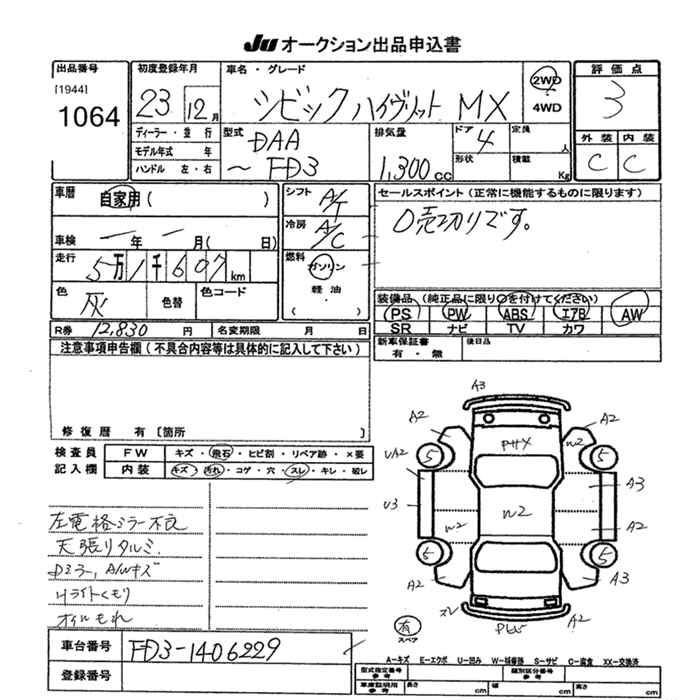 JU オークション出品申込書
出品番号 初度登録年月 車名・グレード 評価点
[1944]
1064
23 12月 シビック ハイヴリット MX 2WD 4WD 3
ディーラー・並行 型式 排気量 ドア 定員 人 外装 内装
モデル年式 年 DAA 4
ハンドル 左・右 ～FD3 1,300cc 形状 積載 Kg C C
車歴 自家用( ) シフト A/T セールスポイント(正常に機能するものに限ります)
車検 ー年 ー月(日) 冷房 A/C 〇売切りです。
走行 5万1千607km 燃料 ガソリン
色 灰 色替 色コード 軽油・( )
装備品(純正品に限り〇を付けてください)
PS PW ABS エアB AW
SR ナビ TV カワ
R券 12,830円 名変期限 月 日 新車保証書 有・無 後日品
注意事項申告欄(不具合内容等は具体的に記入して下さい)
修復歴 有 [箇所
検査員 FW キズ・飛石・ヒビ割・リペア跡・×要
記入欄 内装 キズ・汚れ・コゲ・穴・スレ・キレ・破レ
左電格ミラー不良
天張りタルミ
Dミラー, A/Wキズ
Hライトくもり
オイルもれ
A3
A2 A2
W2
UA2 5 5
U3 A3
W2 W2 A2
5 5
A2 A3
A2
有
スペア
A-キズ E-エクボ U-凹み W-補修跡 S-サビ C-腐食 XX-交換済
車台番号 FD3-1406229
登録番号
型式指定番号 参考 類別区分番号 参考
車庫証明用 参考 長さ cm 幅 cm 高さ cm